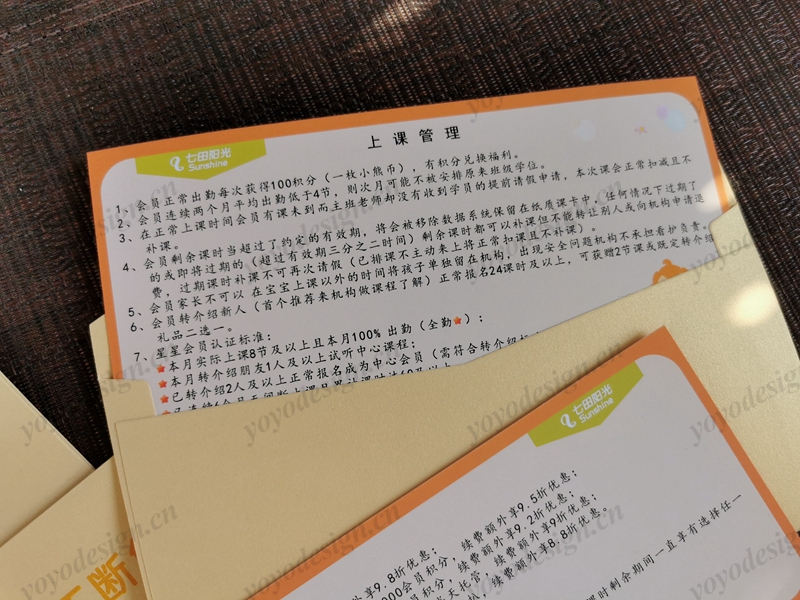 七田阳光
Sunshine
上课管理
1、会员正常出勤每次获得100积分（一枚小熊币），有积分兑换福利。
2、会员连续两个月平均出勤低于4节，则次月可能不被安排原来班级学位。
3、在正常上课时间会员有课未到而主班老师却没有收到学员的提前请假申请，本次课会正常扣减且不
补课。
4、会员剩余课时当超过了约定的有效期，将会被移除数据系统保留在纸质课卡中，任何情况下过期了
的或即将过期的（超过有效期三分之二时间）剩余课时都可以补课但不能转让别人或向机构申请退
费，过期课时补课不可再次请假（已排课不主动来上将正常扣课且不补课）。
5、会员家长不可以在宝宝上课以外的时间将孩子单独留在机构，出现安全问题机构不承担看护负责。
6、会员转介绍新人（首个推荐来机构做课程了解）正常报名24课时及以上，可获赠2节课或既定转介绍
礼品二选一。
7、星星会员认证标准：
本月实际上课8节及以上且本月100%出勤（全勤）；
本月转介绍朋友1人及以上试听中心课程；
已转介绍2人及以上正常报名成为中心会员（需符合转介绍
七田阳光
Sunshine
续费额外享9.5折优惠；
续费额外享9.2折优惠；
享9.8折优惠；
会员积分，续费额外享9折优惠；
续费额外享8.8折优惠。
课时剩余期间一直享有选择任一
不断
yoyodesign.cn